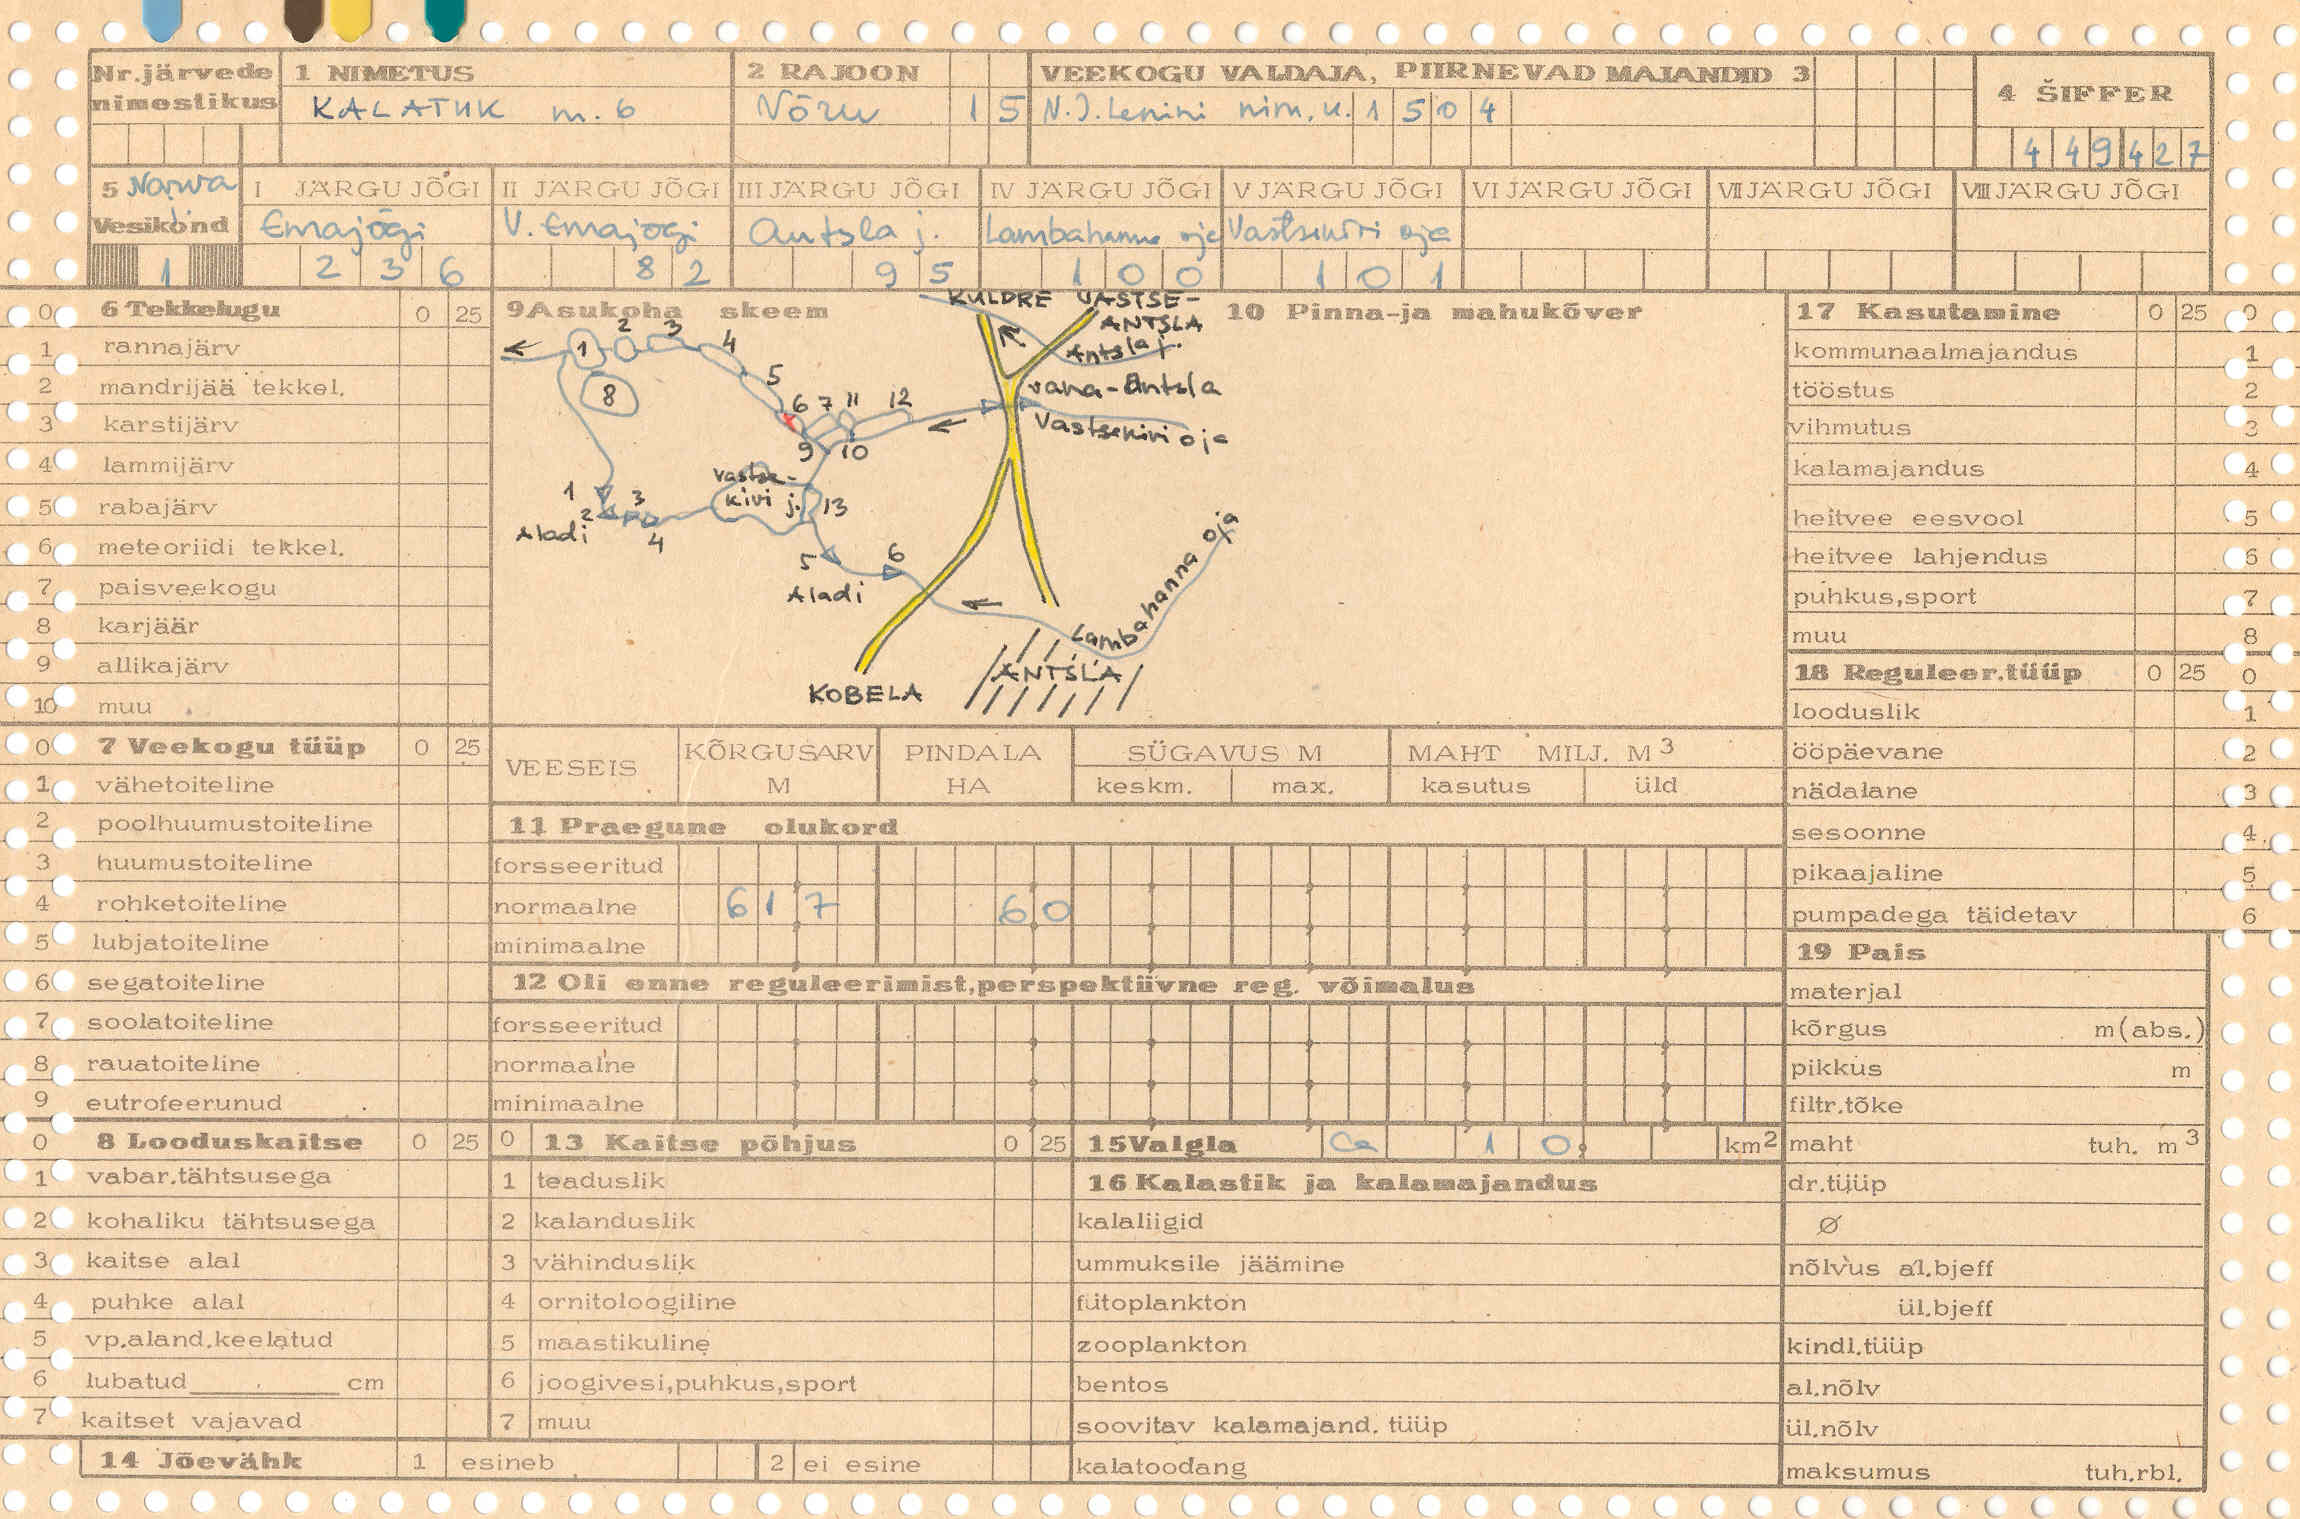 Nr.järvede nimestikus
1 NIMETUS
KALATIIK nr. 6
2 RAJOON
Võru 15
VEEKOGU VALDAJA, PIIRNEVAD MAJANDID 3
N.J.Lenini nim. k. 1504
4 ŠIFFER
449427
5 Narva j. Vesikond
1
I JÄRGU JÕGI
Emajõgi
236
II JÄRGU JÕGI
V. Emajõgi
82
III JÄRGU JÕGI
Antsla j.
95
IV JÄRGU JÕGI
Lambahanna oja
100
V JÄRGU JÕGI
Vastsekivi oja
101
VI JÄRGU JÕGI
VII JÄRGU JÕGI
VIII JÄRGU JÕGI
0 6 Tekkelugu 0 25
1 rannajärv
2 mandrijää tekkel.
3 karstijärv
4 lammijärv
5 rabajärv
6 meteoriidi tekkel.
7 paisveekogu
8 karjäär
9 allikajärv
10 muu
0 7 Veekogu tüüp 0 25
1 vähetoiteline
2 poolhuumustoiteline
3 huumustoiteline
4 rohketoiteline
5 lubjatoiteline
6 segatoiteline
7 soolatoiteline
8 rauatoiteline
9 eutrofeerunud
0 8 Looduskaitse 0 25
1 vabar.tähtsusega
2 kohaliku tähtsusega
3 kaitse alal
4 puhke alal
5 vp.aland.keelatud
6 lubatud cm
7 kaitset vajavad
14 Jõevähk 1 esineb 2 ei esine
9 Asukoha skeem
KULDRE
VASTSE-ANTSLA
Antsla j.
vana-Antsla
Vastsekivi oja
1 2 3 4 5 6 7 11 12
8
9 10
vastse-
kivi j. 13
1
2 3
4
Aladi
5 6
Aladi
Lambahanna oja
ANTSLA
KOBELA
10 Pinna-ja mahukõver
VEESEIS
KÕRGUSARV M
PINDALA HA
SÜGAVUS M
keskm. max.
MAHT MILJ. M3
kasutus üld
11 Praegune olukord
forsseeritud
normaalne 61 7 6 0
minimaalne
12 Oli enne reguleerimist,perspektiivne reg. võimalus
forsseeritud
normaalne
minimaalne
0 13 Kaitse põhjus 0 25
1 teaduslik
2 kalanduslik
3 vähinduslik
4 ornitoloogiline
5 maastikuline
6 joogivesi,puhkus,sport
7 muu
15 Valgla ca 10. km2
16 Kalastik ja kalamajandus
kalaliigid
ummuksile jäämine
fütoplankton
zooplankton
bentos
soovitav kalamajand. tüüp
kalatoodang
17 Kasutamine 0 25 0
kommunaalmajandus 1
tööstus 2
vihmutus 3
kalamajandus 4
heitvee eesvool 5
heitvee lahjendus 6
puhkus,sport 7
muu 8
18 Reguleer.tüüp 0 25 0
looduslik 1
ööpäevane 2
nädalane 3
sesoonne 4
pikaajaline 5
pumpadega täidetav 6
19 Pais
materjal
kõrgus m(abs.)
pikkus m
filtr.tõke
maht tuh. m3
dr.tüüp
Ø
nõlvus al.bjeff
ül.bjeff
kindl.tüüp
al.nõlv
ül.nõlv
maksumus tuh.rbl.